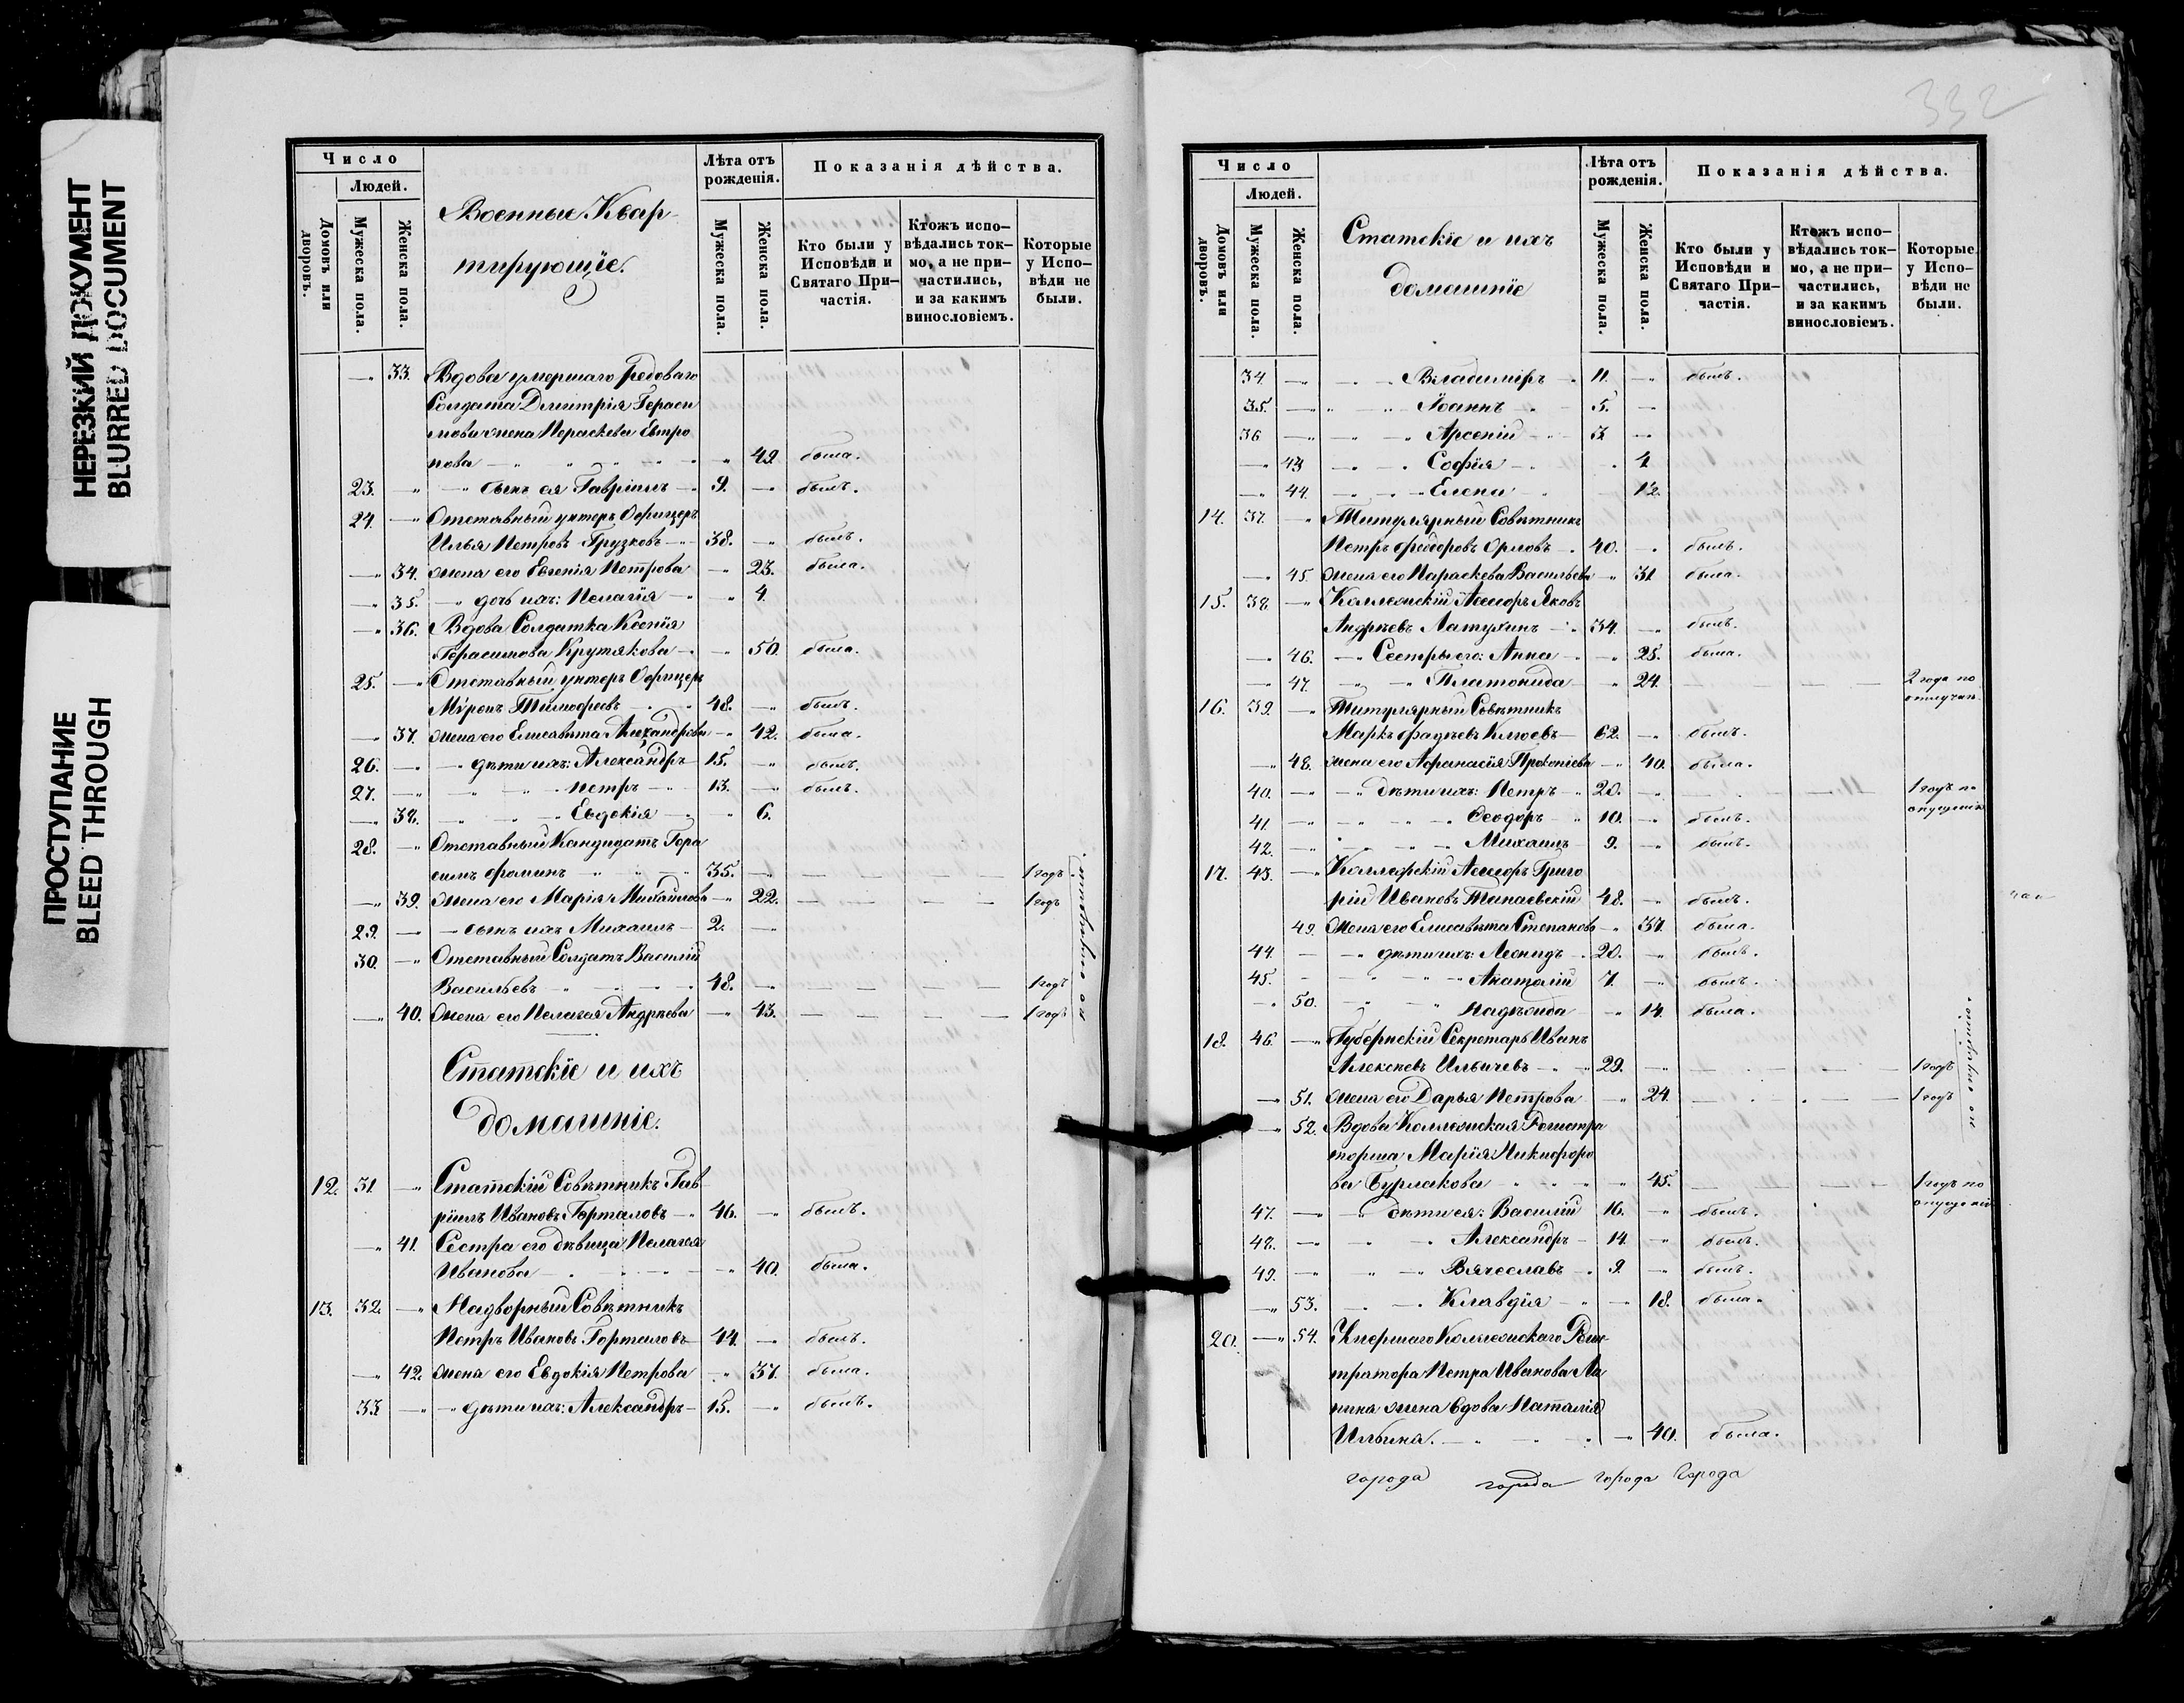 НЕРЕЗКИЙ ДОКУМЕНТ
BLURRED DOCUMENT
ПРОСТУПАНИЕ
BLEED THROUGH
Число
Людей.
Домовъ или дворовъ.
Мужеска пола.
Женска пола.
Военные Квар-
тирующіе.
Лѣта отъ рожденія.
Мужеска пола.
Женска пола.
Показанія дѣйства.
Кто были у Исповѣди и Святаго При-частія.
Ктожъ испо-вѣдались ток-мо, а не при-частились, и за какимъ винословіемъ.
Которые у Испо-вѣди не были.
33. Вдова умершаго Рядоваго
Солдата Дмитрія Гераси
мова жена Параскева
49. была.
23. сынъ ея Гавріилъ 9. былъ.
24. Отставный унтеръ Офицеръ
Илья Петровъ Грузковъ 38. былъ.
34. жена его Евгенія Петрова 23. была.
35. дочь ихъ: Пелагія 4.
36. Вдова Солдатка Ксенія
Герасимова Крутякова 50. была.
25. Отставный унтеръ Офицеръ
Тимофеевъ 48. былъ.
37. жена его Елисавета 42. была.
26. дѣти ихъ: Александръ 15. былъ.
27. Петръ 13. былъ.
38. Евдокія 6.
28. Отставный Кандидатъ Гера
симъ Фоминъ 35. 1 годъ
39. жена его Марія Михайлова 22. 1 годъ
29. сынъ ихъ Михаилъ 2.
30. Отставный Солдатъ Василій
Васильевъ 48. 1 годъ
40. жена его Пелагея Андреева 43. 1 годъ
Статскіе и ихъ
домашніе.
12. 31. Статскій Совѣтникъ Гав
ріилъ Ивановъ Горталовъ 46. былъ.
41. Сестра его дѣвица Пелагея
Иванова 40. была.
13. 32. Надворный Совѣтникъ
Петръ Ивановъ Горталовъ 44. былъ.
42. жена его Евдокія Петрова 37. была.
33 дѣти ихъ: Александръ 15. былъ.
332
Число
Людей.
Домовъ или дворовъ.
Мужеска пола.
Женска пола.
Статскіе и ихъ
домашніе
Лѣта отъ рожденія.
Мужеска пола.
Женска пола.
Показанія дѣйства.
Кто были у Исповѣди и Святаго При-частія.
Ктожъ испо-вѣдались ток-мо, а не при-частились, и за какимъ винословіемъ.
Которые у Испо-вѣди не были.
34. Владиміръ 11. былъ.
35. Іоаннъ 5.
36 Арсеній 3.
43 Софія 4
44. Елена 12.
14. 37. Титулярный Совѣтникъ
Петръ Феодоровъ Орловъ 40. былъ.
45. жена его Параскева Васильева 31 была.
15. 38. Коллежскій Асессоръ Яковъ
Андреевъ Латухинъ 34. былъ.
46. Сестры его: Анна 25. была.
47. Платонида 24. 2 года по
отлучкѣ.
16. 39. Титулярный Совѣтникъ
Маркъ Фадѣевъ Клюевъ 62. былъ.
48. жена его Афанасія Прокопіева 40. была.
40. дѣти ихъ: Петръ 20. 1 годъ по
опущенію
41. Феодоръ 10. былъ.
42. Михаилъ 9. былъ.
17. 43. Коллежскій Асессоръ Григо
рій Ивановъ Танаевскій 48. былъ.
49. жена его Елисавета Степанова 37. была.
44. дѣти ихъ: Леонидъ 20. былъ.
45. Анатолій 7. былъ.
50. Надежда 14. была.
18. 46. Губернскій Секретарь Иванъ
Алексеевъ Ильичевъ 29. 1 годъ
51. жена его Дарья Петрова 24. 1 годъ
52. Вдова Коллежская Регистра
торша Марія Никифоро
ва Бурлакова 45. 1 годъ по
опущенію
47. дѣти ея: Василій 16. былъ.
48. Александръ 14. былъ.
49. Вячеславъ 9. былъ.
53. Клавдія 18. была.
20. 54. Умершаго Коллежскаго Регис
тратора Петра Иванова Ла
пина жена вдова Наталія
Ильина. 40. была.
города города города Города